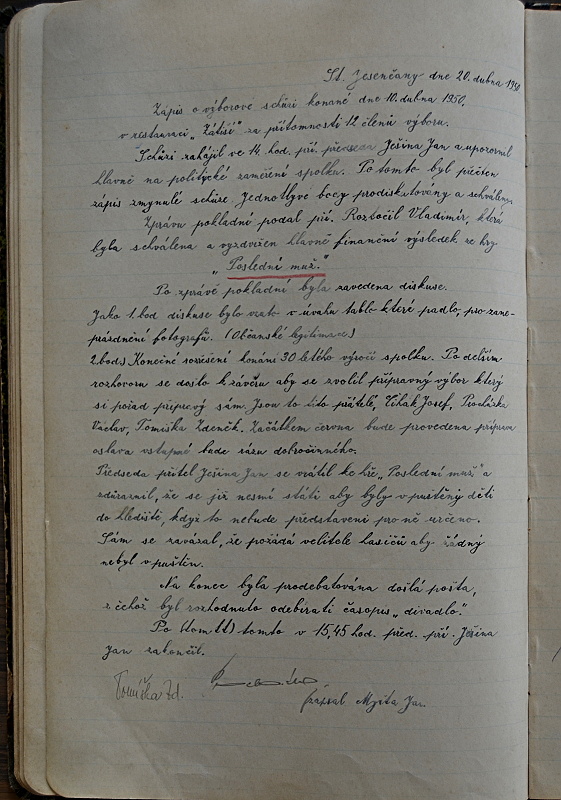 St. Jesenčany dne 20. dubna 1950
Zápis o výborové schůzi konané dne 10. dubna 1950,
v restauraci „Zátiší" za přítomnosti 12 členů výboru.
Schůzi zahájil ve 14. hod. př. předseda Ješina Jan a upozornil
hlavně na politycké zaměření spolku. Po tomto byl přečten
zápis zmynulé schůze. Jednotlyvé body prodiskutovány a schváleny.
Zprávu pokladní podal př. Roztočil Vladimír, která
byla schválena a vyzdvižen hlavně finanční výsledek ze hry
„Poslední muž."
Po zprávě pokladní byla zavedena diskuse.
Jako 1. bod diskuse bylo vzato v úvahu tablo které padlo, pro zane-
prázdnění fotografů. (Občanské legitimace)
2. bod.) Konečné rozřešení konání 30 letého výročí spolku. Po delším
rozhovoru se došlo k závěru aby se zvolil přípravný výbor který
si pořad připraví sám. Jsou to tito přátelé, Cihák Josef, Procházka
Václav, Tomiška Zdeněk. Začátkem června bude provedena příprava
oslava vstupné bude rázu dobročinného.
Předseda přítel Ješina Jan se vrátil ke hře „Poslední muž" a
zdůraznil, že se již nesmí státi aby byly vpuštěny děti
do hlediště, když to nebude představení pro ně určeno.
Sám se zavázal, že požádá velitele hasičů aby žádný
nebyl vpuštěn.
Na konec byla prodebatována došlá pošta,
z čehož byl rozhodnuto odebírati časopis „divadlo."
Po tomto v 15,45 hod. před. př. Ješina
Jan zakončil.
Tomiška Zd.
zapsal Jan.